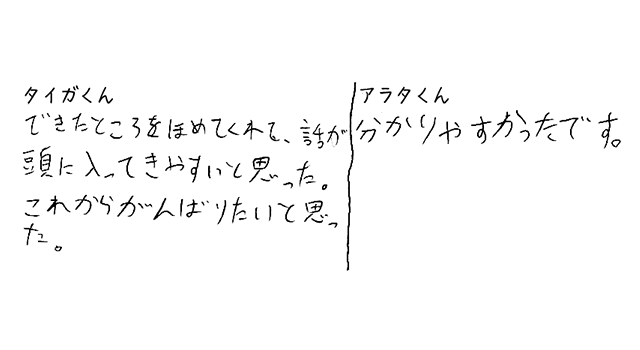 タイガくん
できたところをほめてくれて、話が
頭に入ってきやすいと思った。
これからがんばりたいと思っ
た。
アラタくん
分かりやすかったです。